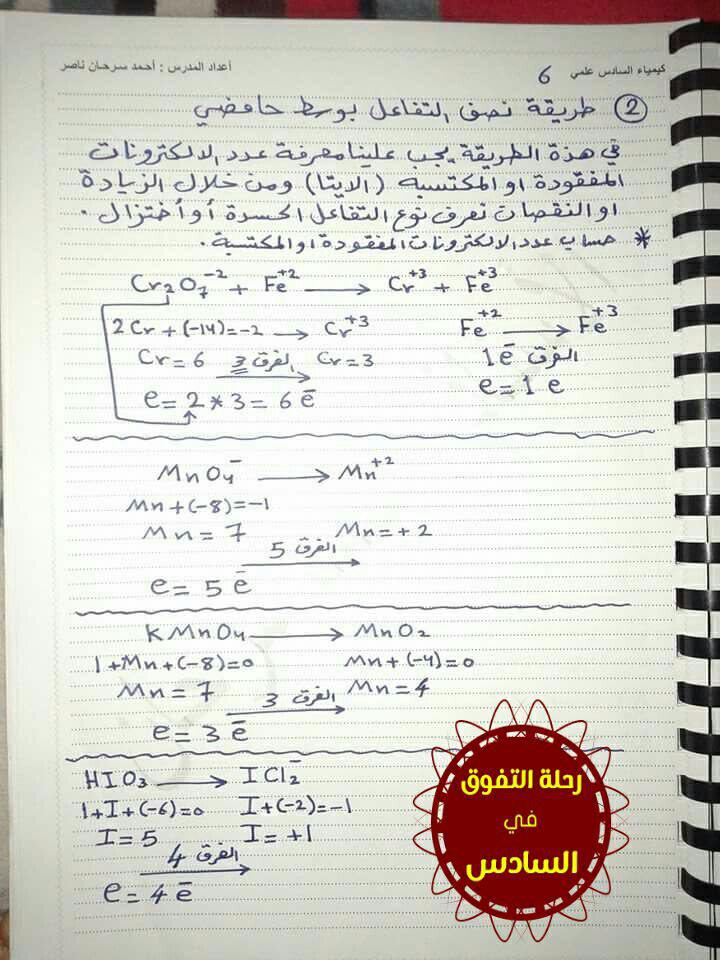 كيمياء السادس علمي 6 أعداد المدرس : أحمد سرحان ناصر
② طريقة نصف التفاعل بوسط حامضي
في هذة الطريقة يجب علينا معرفة عدد الالكترونات
المفقودة او المكتسبة (الايتا) ومن خلال الزيادة
او النقصان نعرف نوع التفاعل اكسدة أو أختزال .
* حساب عدد الالكترونات المفقودة او المكتسبة .
Cr₂O₇⁻² + Fe⁺² ⟶ Cr⁺³ + Fe⁺³
2Cr + (-14) = -2 ⟶ Cr⁺³ Fe⁺² ⟶ Fe⁺³
Cr = 6 الفرق 3 Cr = 3 الفرق 1e⁻
e = 2 * 3 = 6 e⁻ e = 1 e
MnO₄⁻ ⟶ Mn⁺²
Mn + (-8) = -1
Mn = 7 الفرق 5 Mn = +2
e = 5 e⁻
KMnO₄ ⟶ MnO₂
1 + Mn + (-8) = 0 Mn + (-4) = 0
Mn = 7 الفرق 3 Mn = 4
e = 3 e⁻
HIO₃ ⟶ ICl₂⁻
1 + I + (-6) = 0 I + (-2) = -1
I = 5 I = +1
الفرق 4
e = 4 e⁻
رحلة التفوق
في
السادس